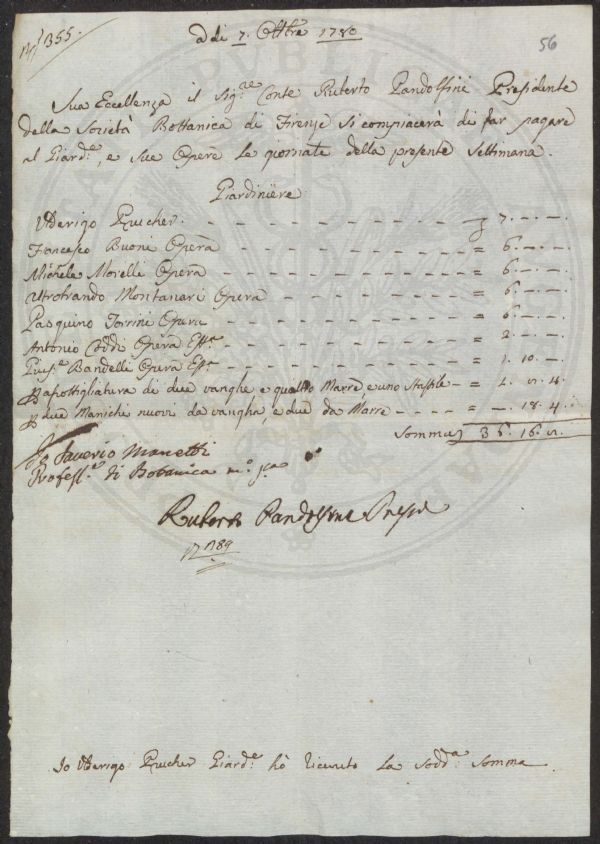 N.° 355.
56
Adi 7. Ottre 1780
Sua Eccellenza il Sig.re Conte Ruberto Pandolfini Presidente
della Società Bottanica di Firenze si compiacerà di far pagare
al Giard.e, e sue Opere le giornate della presente Settimana.
Giardiniere
Uderigo Prucher - - - 7. -. -.
Francesco Buoni Opera - - - = 6. -. -.
Michele Morelli Opera - - - = 6. -. -.
Montanari Opera - - - = 6. -. -.
Pasquino Torrini Opera - - - = 6. -. -.
Antonio Opera - - - = 2. -. -.
Gius.e Bandelli Opera - - - = 1. 10. -.
di due vanghe e quattro Marre e uno - = 1. 8.
due Maniche nuovi da vangha, e due da Marre - - - = -. 18. 4.
Somma 36. 16.
Io Saverio Manetti
Profess.e di Botanica m.o p.a
Ruberto Pandolfini
1789
Io Uderigo Prucher Giard.e hò ricevuto la sodd.a somma